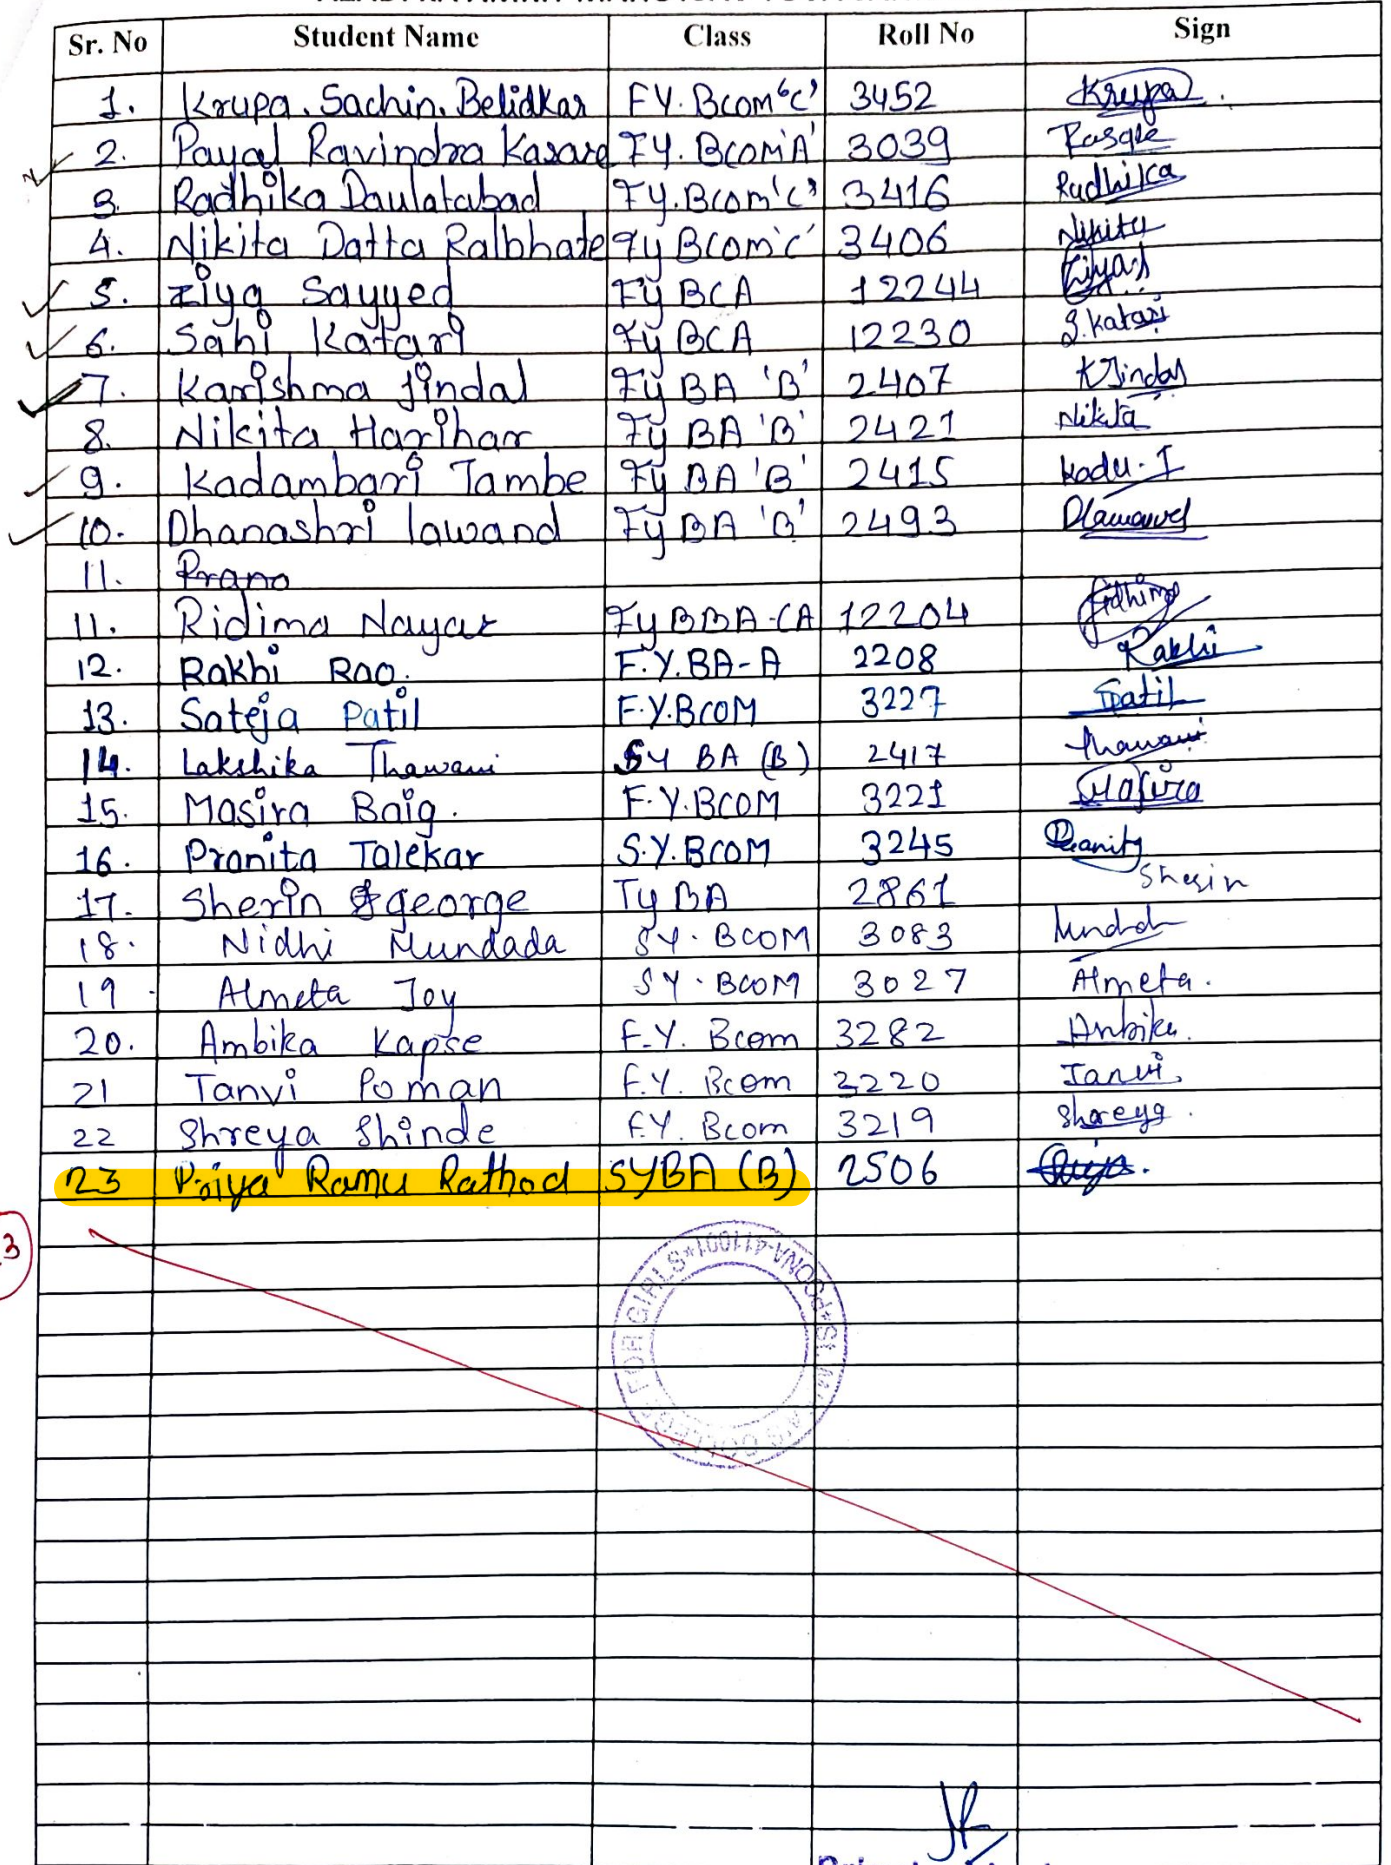 Sr. No Student Name Class Roll No Sign
1. Krupa. Sachin. Belidkar FY. Bcom 'C' 3452 Krupa.
2. Payal Ravindra Kasare FY. BCOM 'A' 3039
3. Radhika Daulatabad FY. Bcom 'C' 3416 Radhika
4. Nikita Datta Ralbhate Fy Bcom 'C' 3406 Nikita
5. Ziya Sayyed Fy BCA 12244 Ziya
6. Sahi Katari Fy BCA 12230 S. Katari
7. Karishma Jindal Fy BA 'B' 2407 KJindal
8. Nikita Harihar Fy BA 'B' 2421 Nikita
9. Kadambari Tambe Fy BA 'B' 2415 Kadu. T
10. Dhanashri lawand Fy BA 'B' 2493 Dlawand
11. Prano
11. Ridima Nayar Fy BBA-CA 12204 Ridhima
12. Rakhi Rao. F.Y.BA-A 2208 Rakhi
13. Sateja Patil F.Y.BCOM 3227 SPatil
14. Lakshika Thawani SY BA (B) 2417 Thawani
15. Masira Baig. F.Y.BCOM 3221 Masira
16. Pranita Talekar S.Y.BCOM 3245 Pranita
17. Sherin george Ty BA 2861 Sherin
18. Nidhi Mundada SY. BCOM 3083
19 Almeta Joy SY. BCOM 3027 Almeta.
20. Ambika Kapse F.Y. Bcom 3282 Ambika.
21 Tanvi Poman F.Y. Bcom 3220 Tanvi
22 Shreya Shinde F.Y. Bcom 3219 Shreya.
23 Priya Ramu Rathod SYBA (B) 2506
ST. MIRA'S COLLEGE FOR GIRLS * POONA-411001 *